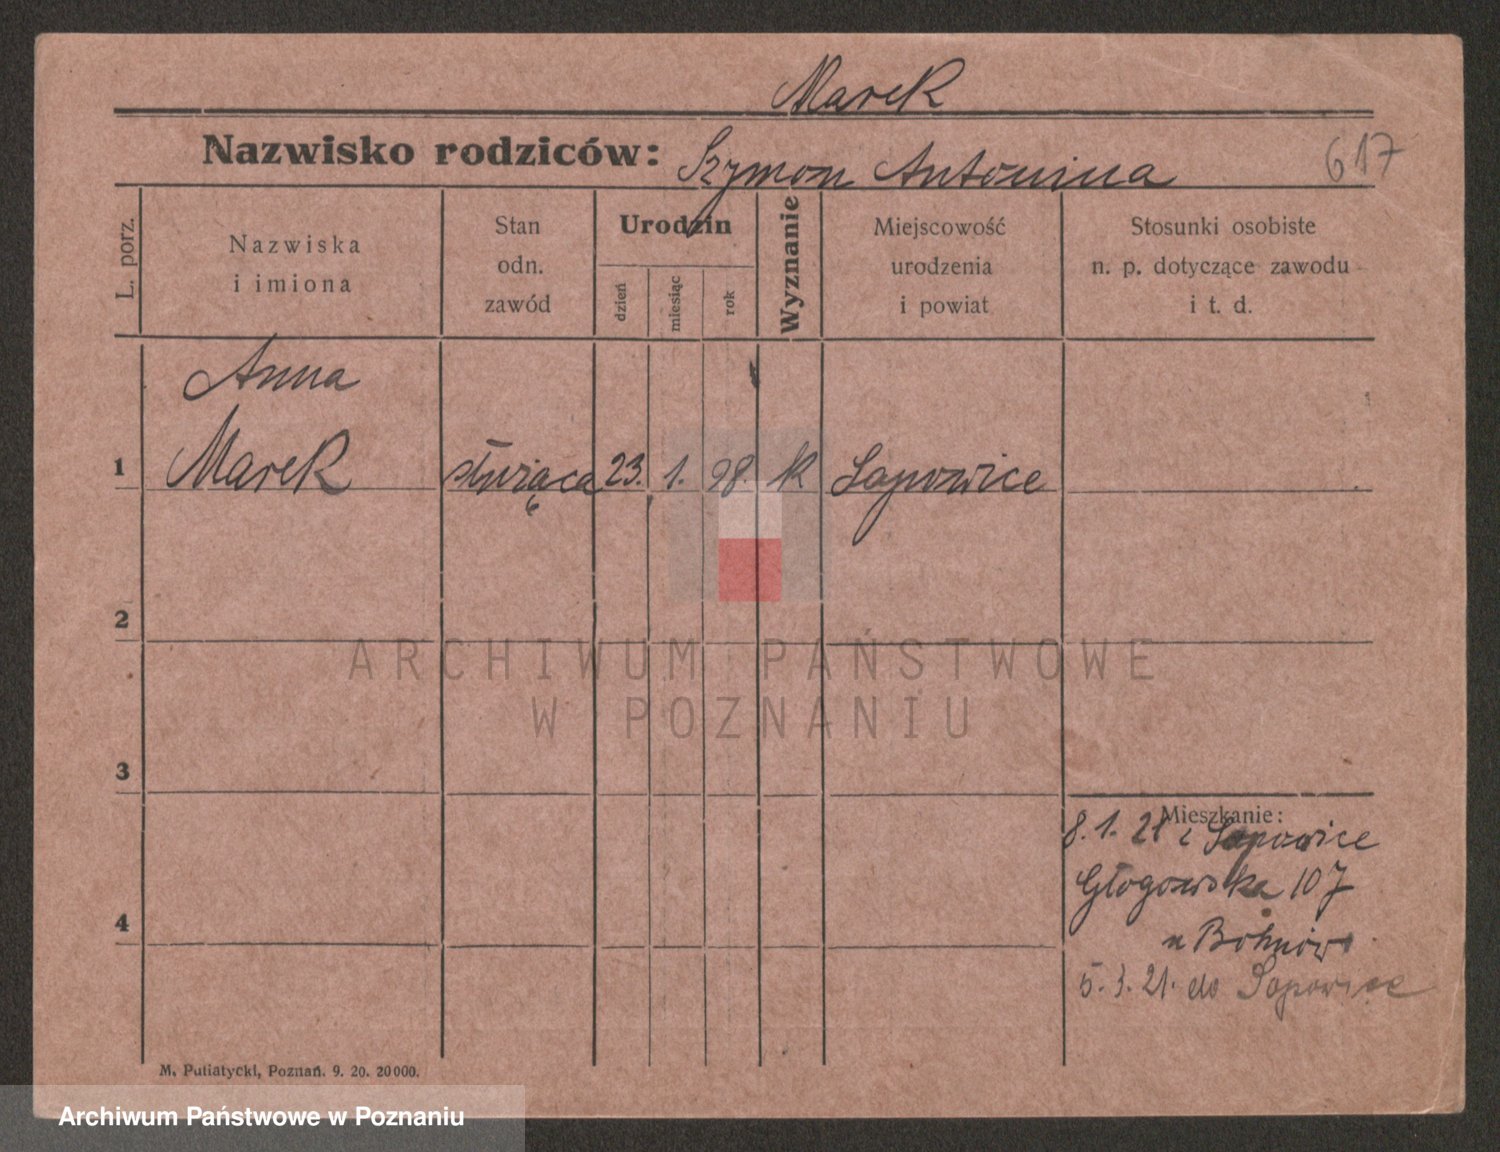 Marek
Nazwisko rodziców: Szymon Antonina 617
L. porz.
Nazwiska
i imiona
Stan
odn.
zawód
Urodzin
dzień
miesiąc
rok
Wyznanie
Miejscowość
urodzenia
i powiat
Stosunki osobiste
n. p. dotyczące zawodu
i t. d.
Anna
1 Marek służąca 23. 1. 98. k Sapowice
2
ARCHIWUM PAŃSTWOWE
W POZNANIU
3
Mieszkanie:
8. 1. 21 z Sapowice
Głogowska 107
4
u
5. 3. 21. do Sapowice
M. Putiatycki, Poznań. 9. 20. 20000.
Archiwum Państwowe w Poznaniu